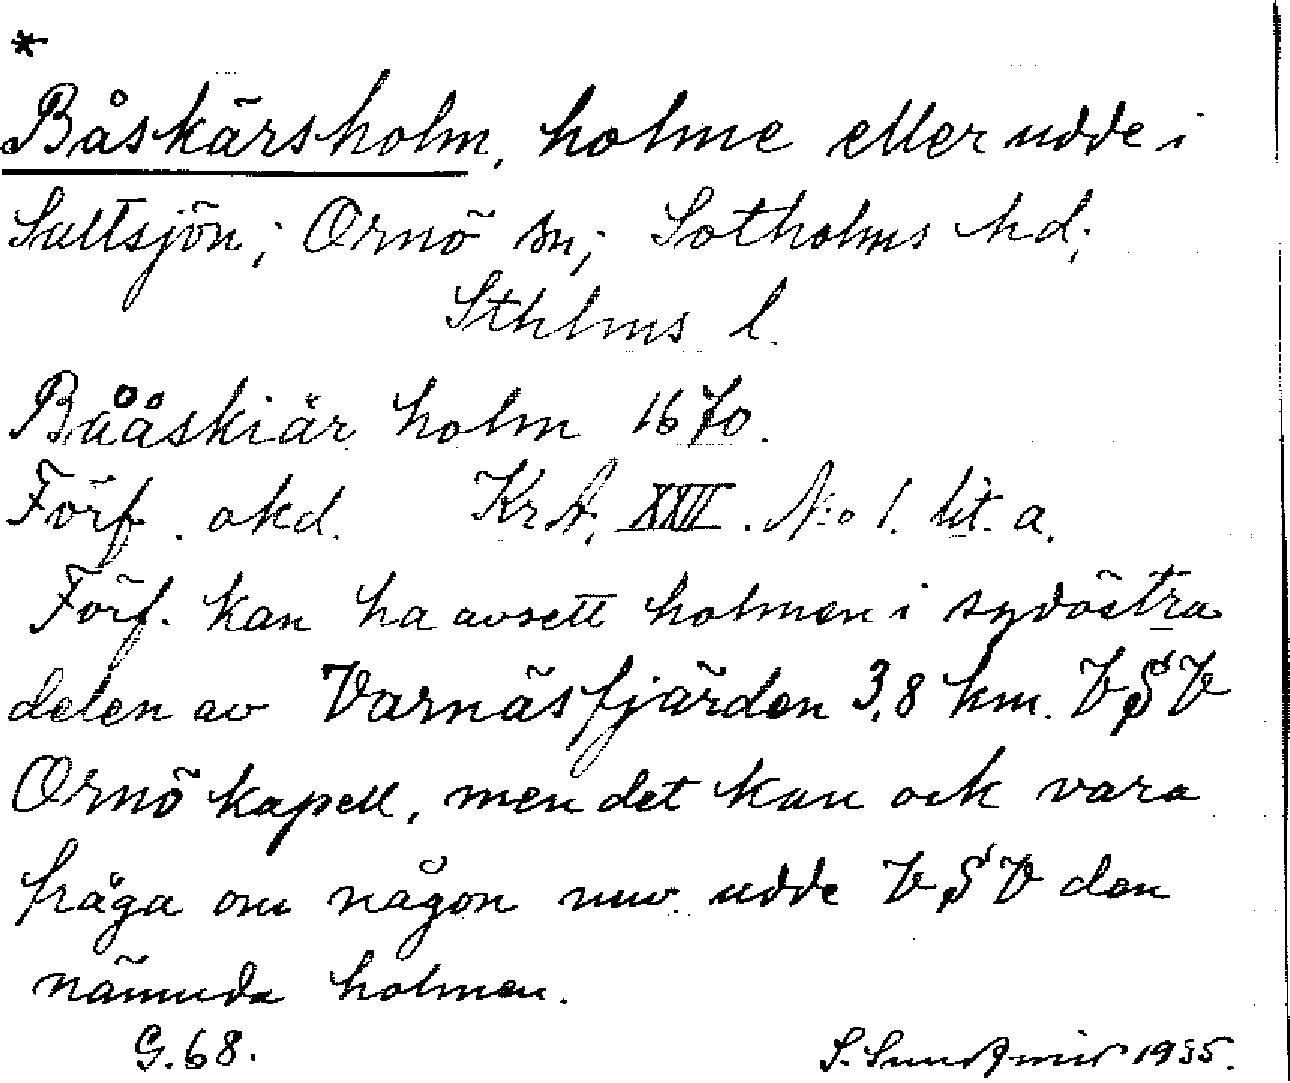 *
Båskärsholm, holme eller udde i
Saltsjön; Ornö sn; Sotholms hd;
Sthlms l.
Bååskiär holm 1670.
Förf. okd. KrA, XXVI. N:o 1. lit. a.
Förf. kan ha avsett holmen i sydöstra
delen av Varnäsfjärden 3,8 km. VSV
Ornö kapell, men det kan ock vara
fråga om någon nuv. udde VSV den
nämnda holmen.
G.68.
S. 1935.